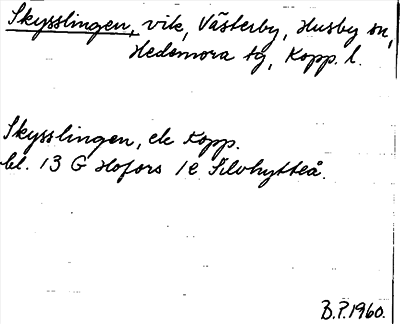 Skysslingen, vik, Västerby, Husby sn,
Hedemora tg, Kopp. l.
Skysslingen, ek Kopp.
bl. 13 G Hofors 1e Silvhytteå.
B.P.1960.